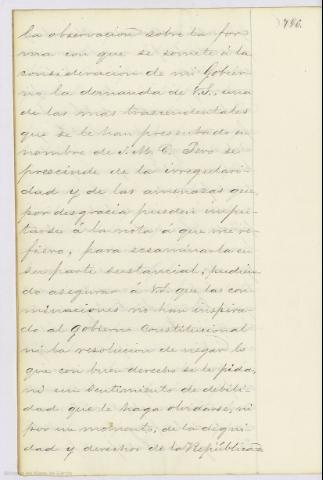 786.
la observacion sobre la for-
ma con que se somete á la
consideracion de mi Gobier-
no la demanda de V.S., una
de las mas trascendentales
que se le han presentado en
nombre de S. M. C. Pero se
prescinde de la irregulari-
dad y de las amenazas que
por desgracia pueden impu-
tarse á la nota á que me re-
fiero, para ecsaminarla en
su parte sustancial, pudien-
do asegurar á V.S. que las con-
minaciones no han inspira-
do al Gobierno Constitucional
ni la resolucion de negar lo
que con buen derecho se le pida,
ni un sentimiento de debili-
dad que le haga olvidarse, ni
por un momento, de la digni-
dad y derechos de la República